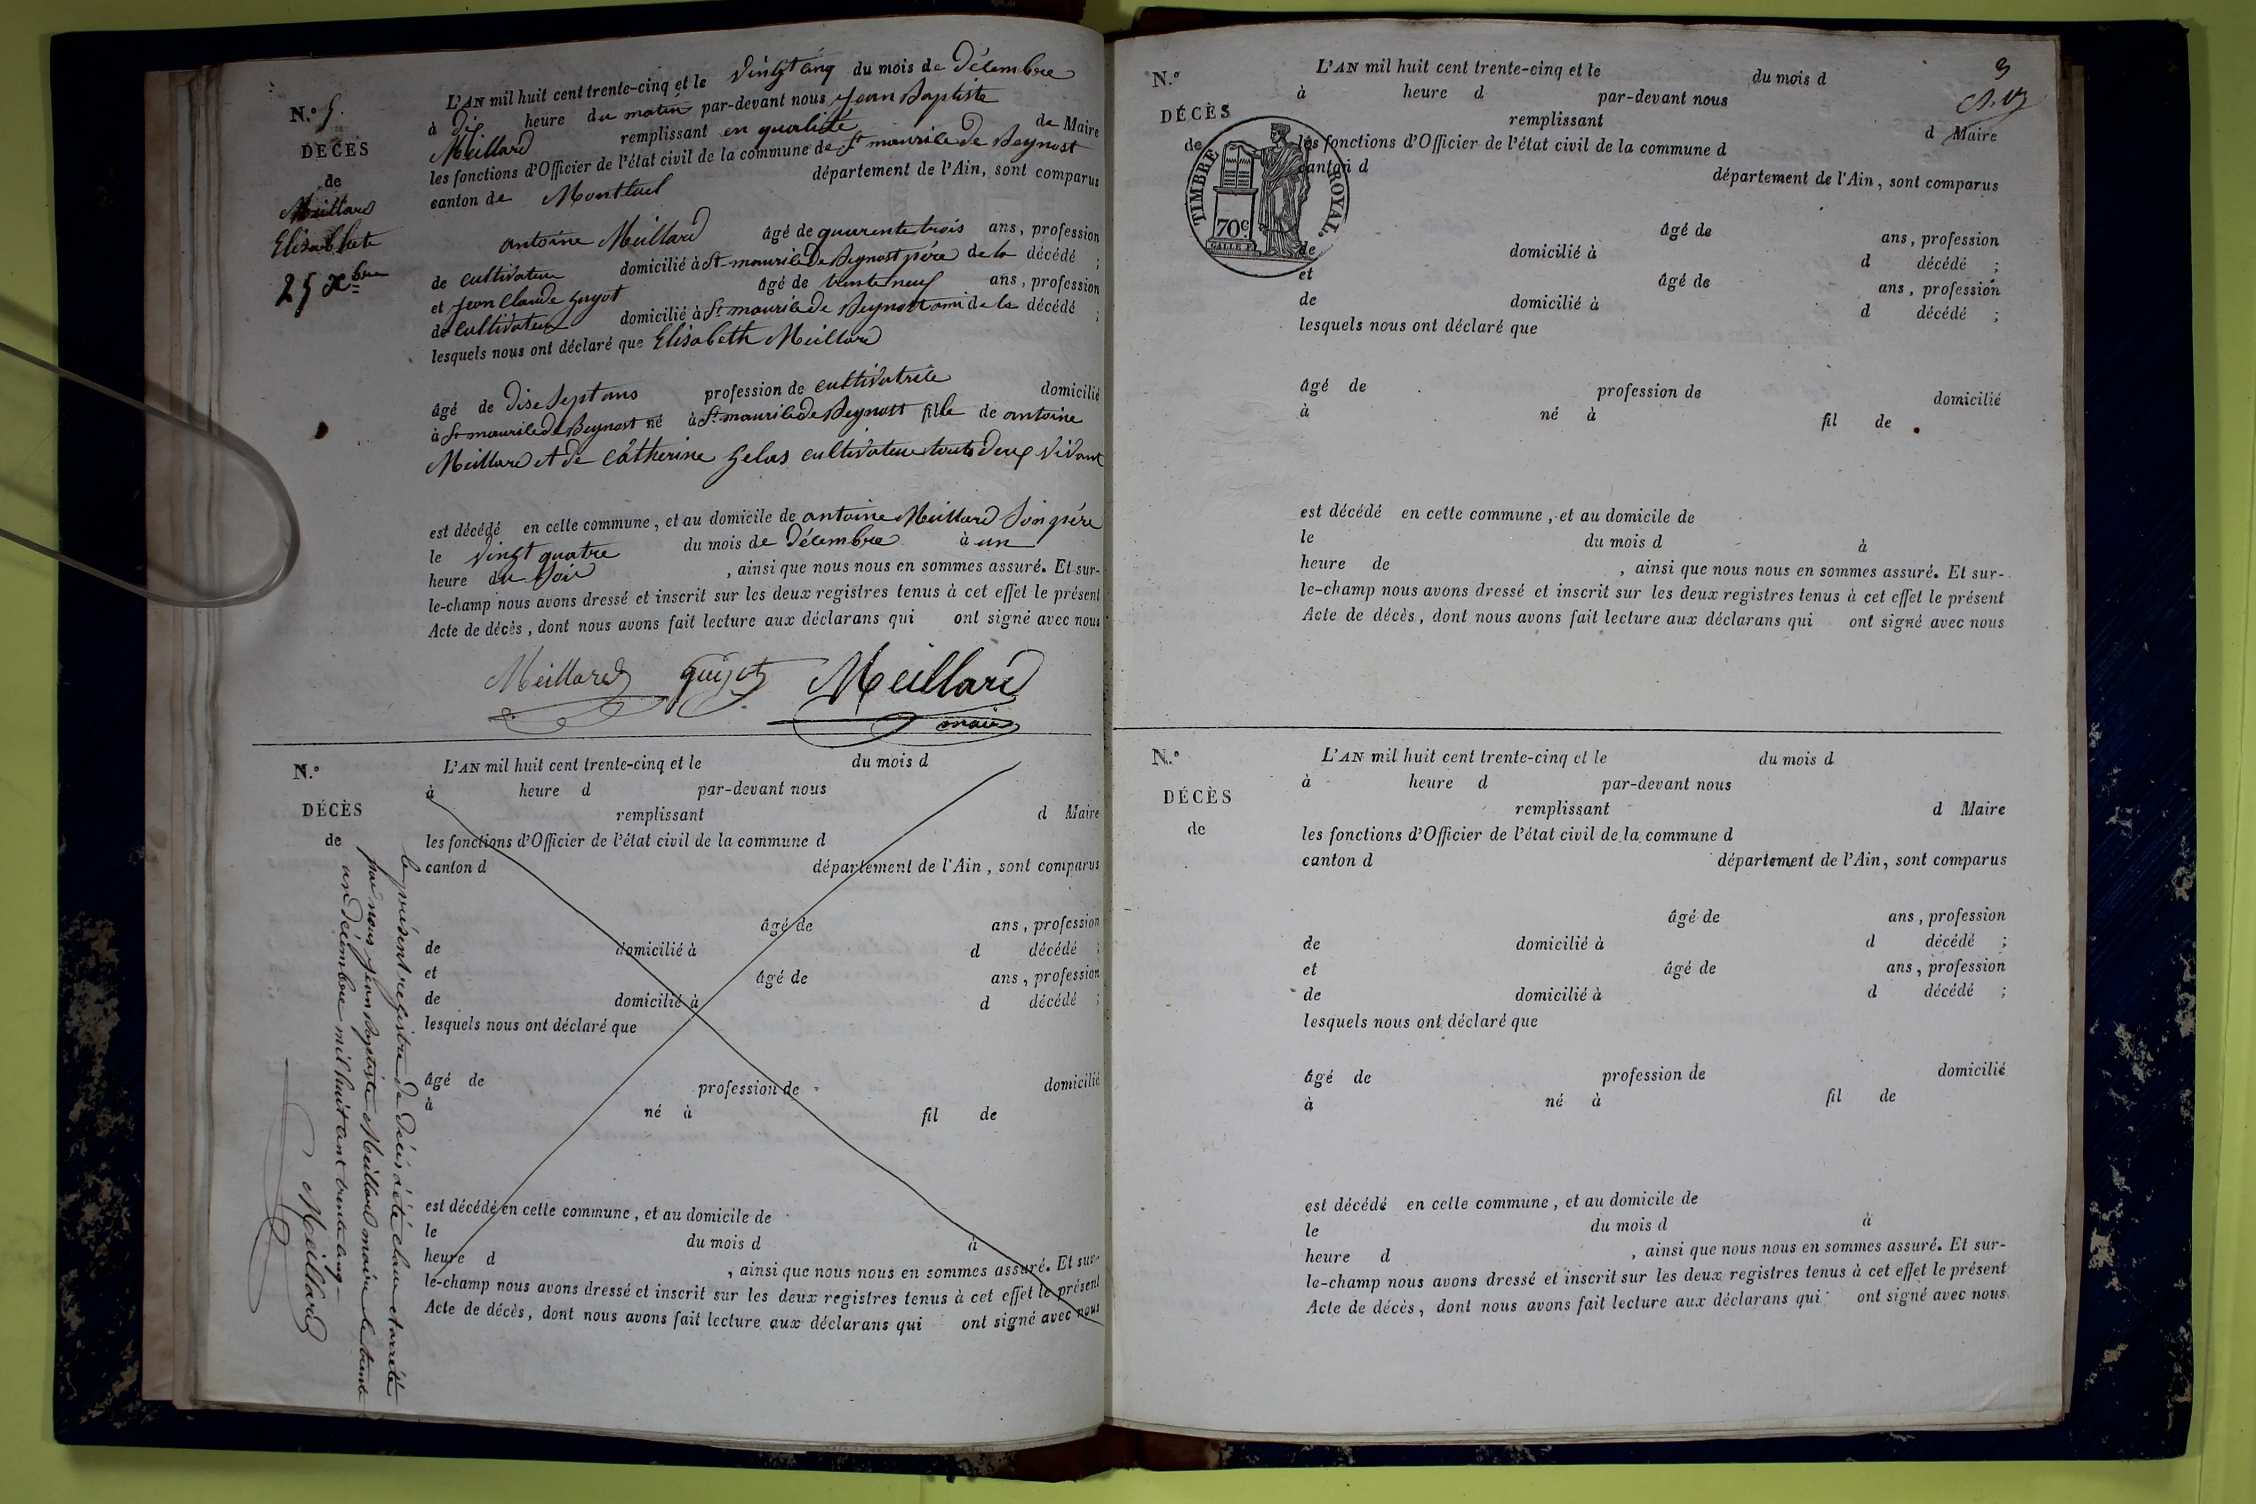 N.º 5.
DÉCÈS
de
Meillard
Elisabhet
25 Xbre
L'AN mil huit cent trente-cinq et le vingt cinq du mois de Décembre
à dix heure du matin par-devant nous Jean Baptiste
Meillard remplissant en qualité de Maire
les fonctions d'Officier de l'état civil de la commune de St maurice de Beynost
canton de Montluel département de l'Ain, sont comparus
antoine Meillard âgé de quarente trois ans, profession
de cultivateur domicilié à St maurice de Beynost père de la décédé ;
et Jean Claude guyot âgé de trente neuf ans, profession
de cultivateur domicilié à St maurice de Beynost ami de la décédé ;
lesquels nous ont déclaré que Elisabeth Meillard
âgé de dise sept ans profession de cultivatrice domicilié
à St maurice de Beynost né à St maurice de Beynost fille de antoine
Meillard et de Câtherine gelas cultivateur touts deux vivant
est décédé en cette commune, et au domicile de antoine Meillard son père
le vingt quatre du mois de Décembre à un
heure du soir , ainsi que nous nous en sommes assuré. Et sur-
le-champ nous avons dressé et inscrit sur les deux registres tenus à cet effet le présent
Acte de décès, dont nous avons fait lecture aux déclarans qui ont signé avec nous
Meillard guyot Meillard
maire
N.º
DÉCÈS
de
L'AN mil huit cent trente-cinq et le du mois d
à heure d par-devant nous
remplissant d Maire
les fonctions d'Officier de l'état civil de la commune d
canton d département de l'Ain, sont comparus
âgé de ans, profession
de domicilié à d décédé ;
et âgé de ans, profession
de domicilié à d décédé ;
lesquels nous ont déclaré que
âgé de profession de domicilié
à né à fil de
est décédé en cette commune, et au domicile de
le du mois d à
heure d , ainsi que nous nous en sommes assuré. Et sur-
le-champ nous avons dressé et inscrit sur les deux registres tenus à cet effet le présent
Acte de décès, dont nous avons fait lecture aux déclarans qui ont signé avec nous
le présent registre de décès à été clau et arrêté
par nous Jean Baptiste Meillard maire le trente
un décembre mil huit cent trente cinq
Meillard
3
N.º
DÉCÈS
de
TIMBRE ROYAL.
70c
L'AN mil huit cent trente-cinq et le du mois d
à heure d par-devant nous
remplissant d Maire
les fonctions d'Officier de l'état civil de la commune d
canton d département de l'Ain, sont comparus
âgé de ans, profession
de domicilié à d décédé ;
et âgé de ans, profession
de domicilié à d décédé ;
lesquels nous ont déclaré que
âgé de profession de domicilié
à né à fil de
est décédé en cette commune, et au domicile de
le du mois d à
heure de , ainsi que nous nous en sommes assuré. Et sur-
le-champ nous avons dressé et inscrit sur les deux registres tenus à cet effet le présent
Acte de décès, dont nous avons fait lecture aux déclarans qui ont signé avec nous
N.º
DÉCÈS
de
L'AN mil huit cent trente-cinq et le du mois d
à heure d par-devant nous
remplissant d Maire
les fonctions d'Officier de l'état civil de la commune d
canton d département de l'Ain, sont comparus
âgé de ans, profession
de domicilié à d décédé ;
et âgé de ans, profession
de domicilié à d décédé ;
lesquels nous ont déclaré que
âgé de profession de domicilié
à né à fil de
est décédé en cette commune, et au domicile de
le du mois d à
heure d , ainsi que nous nous en sommes assuré. Et sur-
le-champ nous avons dressé et inscrit sur les deux registres tenus à cet effet le présent
Acte de décès, dont nous avons fait lecture aux déclarans qui ont signé avec nous